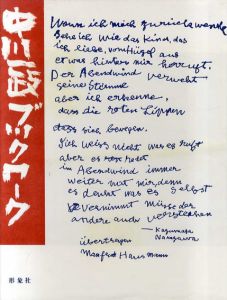 中川一政ブックワーク
形象社
Wenn ich mich zurückwende
Sehe ich wie das Kind, das
ich liebe, vom Hügel aus
etwas hinter mir herruft.
Der Abendwind verweht
seine Stimme
aber ich erkenne,
dass die roten Lippen
sich bewegen.
Ich weiss nicht was es ruft
aber es
im Abendwind immer
weiter mir, denn
es was es selbst
vernimmt müsse der
andere auch verstehen
— Kazumasa
Nakagawa
übertragen
Manfred Hausmann